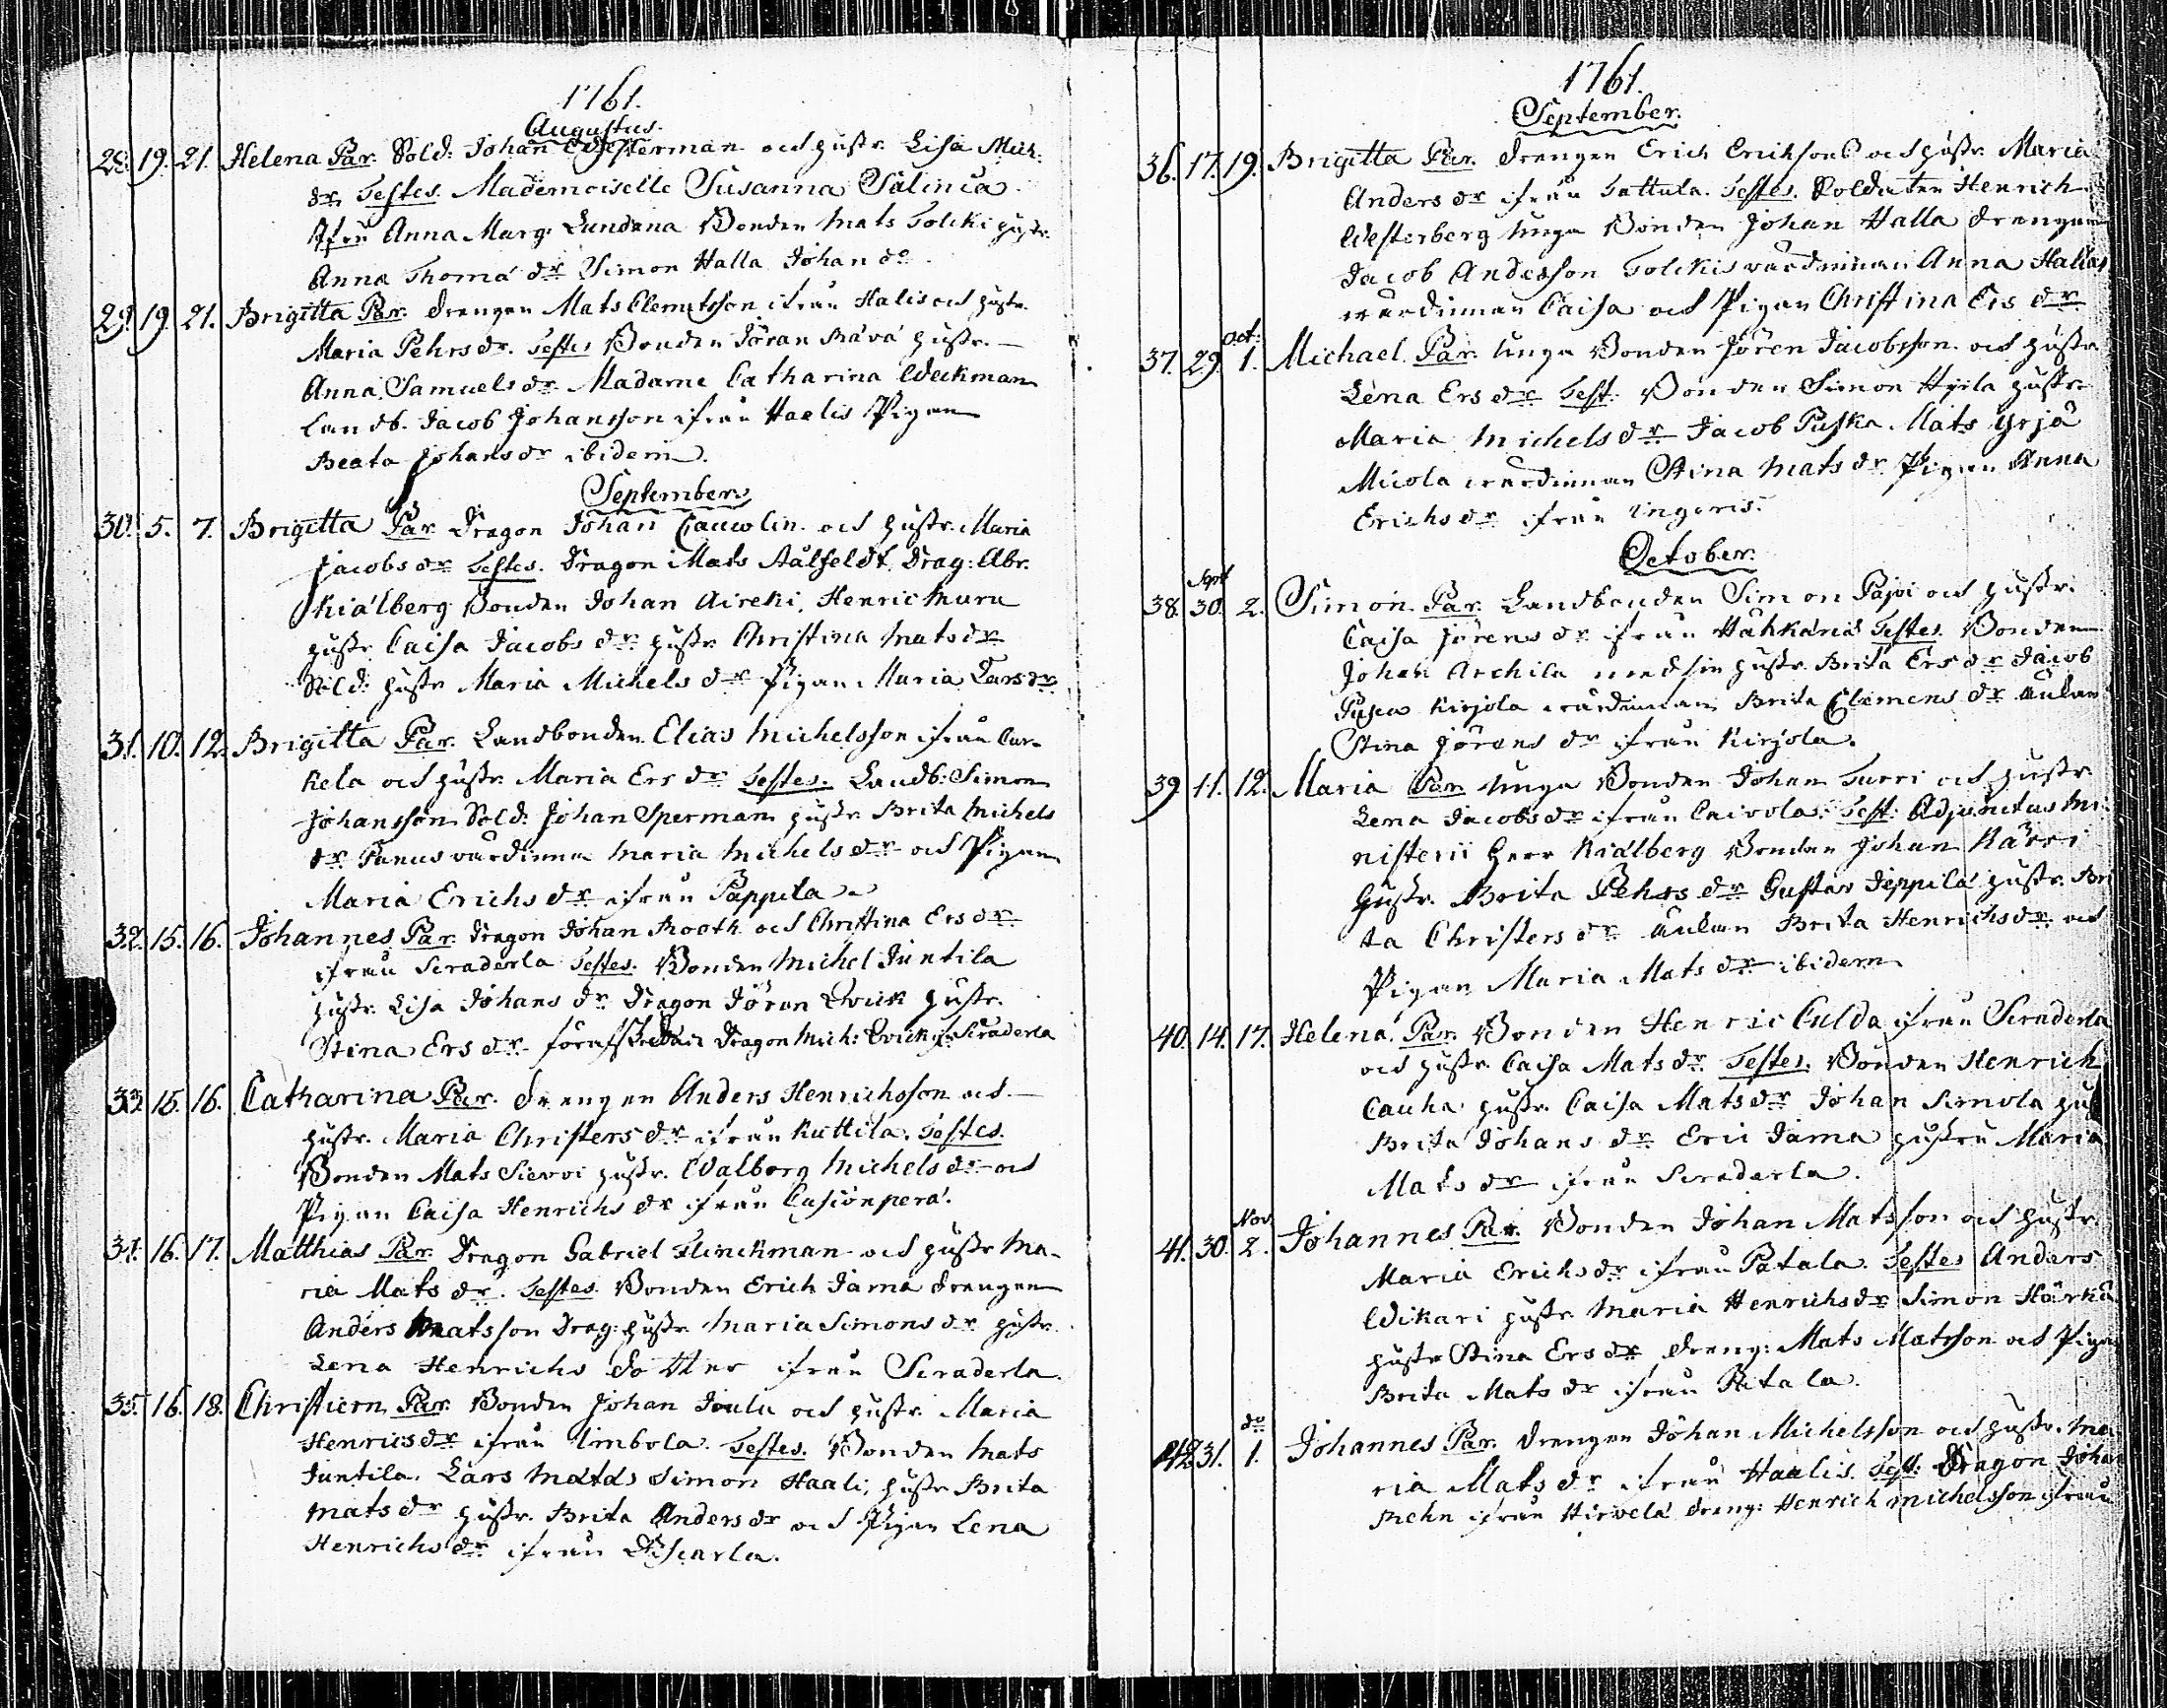 1761.
Augustus.
28. 19. 21. Helena Par. Sold: Johan Westerman och hustr. Lisa Mich:
dr. Testes. Mademoiselle Susanna Salinia
Jfru Anna Marg: Lundana Bonden Mats Tolcki hustr.
Anna Thomæ dr Simon Halla Johan do
29. 19. 21. Brigitta Par. drengen Mats Clemetsson ifrån Halis och hustr.
Maria Pehrs dr. Testes Bonden Jöran Rävä hustr.
Anna Samuels dr Madame Catharina Weckman
Landb. Jacob Johansson ifrån Haalis Pigan
Beata Johans dr ibidem.
September.
30. 5. 7. Brigitta Par. Dragon Johan Cauwlin och hustr. Maria
Jacobs dr Testes. Dragon Mats Aalfeldt. Drag: Abr.
Kiälberg Bonden Johan Aireki, Henric Muru
hustr. Caisa Jacobs dr hustr. Christina Mats dr
Sold: hustr. Maria Michels dr Pigan Maria Lars dr
31. 10. 12. Brigitta Par. Landbonden Elias Michelsson ifrån Car-
kela och hustr. Maria Ers dr Testes. Landb: Simon
Johansson Sold: Johan Sperman hustr. Brita Michels
dr Panus värdinna Maria Michels dr och Pigan
Maria Erichs dr ifrån Pappila
32. 15. 16. Johannes Par. Dragon Johan Rooth och Christina Ers dr
ifrån Seraderla Testes. Bonden Michel Juntila
hustr. Lisa Johans dr Dragon Jöran Qvick hustr.
Stina Ers dr Dragon Mich: Qvick ifr. Seraderla
33. 15. 16. Catharina Par. drengen Anders Henrichsson och
hustr. Maria Christers dr ifrån Kuttila. Testes.
Bonden Mats Siervoi hustr. Walborg Michels dr och
Pigan Caisa Henrichs dr ifrån Casionperä.
34. 16. 17. Matthias Par. Dragon Gabriel Flinckman och hustr Ma-
ria Mats dr. Testes. Bonden Erich Jama drengen
Anders Matsson Drag: hustr. Maria Simons dr hustr.
Lena Henrichs dotter ifrån Seraderla.
35. 16. 18. Christiern Par. Bonden Johan Joulu och hustr. Maria
Henrics dr ifrån Limbola. Testes. Bonden Mats
Juntila. Lars Matas Simon Haali, hustr Brita
Mats dr hustr. Brita Anders dr och Pigan Lena
Henrichs dr ifrån
1761.
September.
36. 17. 19. Brigitta Par. drengen Erich Erichsons och hustr. Maria
Anders dr ifrån Tattula. Testes. Soldaten Henrich
Westerberg Unga Bonden Johan Halla drengen
Jacob Andersson Tolckis värdinnan Anna Hallas
värdinnan Caisa och Pigan Christina Ers dr
Oct:
37. 29. 1. Michael. Par. Unga Bonden Jören Jacobsson och hustr.
Lena Ers dr Test. Bonden Simon Hyila hustr.
Maria Michels dr Jacob Puska. Mats Yrjä
Micola värdinnan Stina Mats dr Pigan Anna
Erichs dr ifrån Ingeris.
October.
Sept
38. 30. 2. Simon. Par. Landbonden Simon Pajoi och hustr.
Caisa Jörens dr ifrån Hahkana Testes. Bonden
Johan Archila med sin hustr. Brita Ers dr Jacob
Pusca Kirjola värdinnan Brita Clemens dr Enkan
Stina Jörens dr ifrån Kirjola.
39. 11. 12. Maria Par. Unga Bonden Johan Turri och hustr.
Lena Jacobs dr ifrån Caivola. Test: Adjunctus Mi-
nisterii Herr Kiälberg Bonden Johan Kärri
hustr. Brita Pehrs dr Gustav Jeppilä hustr. Bri
ta Christers dr Enkan Brita Henrichs dr och
Pigan Maria Mats dr ibidem
40. 14. 17. Helena. Par. Bonden Henric Culda ifrån Seraderla
och hustr. Caisa Mats dr. Testes. Bonden Henrich
Cauha hustr. Caisa Mats dr Johan Simola hus
Brita Johans dr Eric Jama hustru Maria
Mats dr ifrån Seraderla.
Nov.
41. 30. 2. Johannes Par. Bonden Johan Matsson och hustr.
Maria Erichs dr ifrån Patala. Testes Anders
Wikari hustr. Maria Henrichs dr Simon Härkä
hustr Stina Ers dr dreng: Mats Matsson och Pigan
Brita Mats dr ifrån Patala.
do
42. 31. 1. Johannes Par. drengen Johan Michelsson och hustr. Ma
ria Mats dr ifrån Haalis. Test: Dragon Johan
Rehn ifrån Hirvelä dreng: Henrich Michelsson ifrån